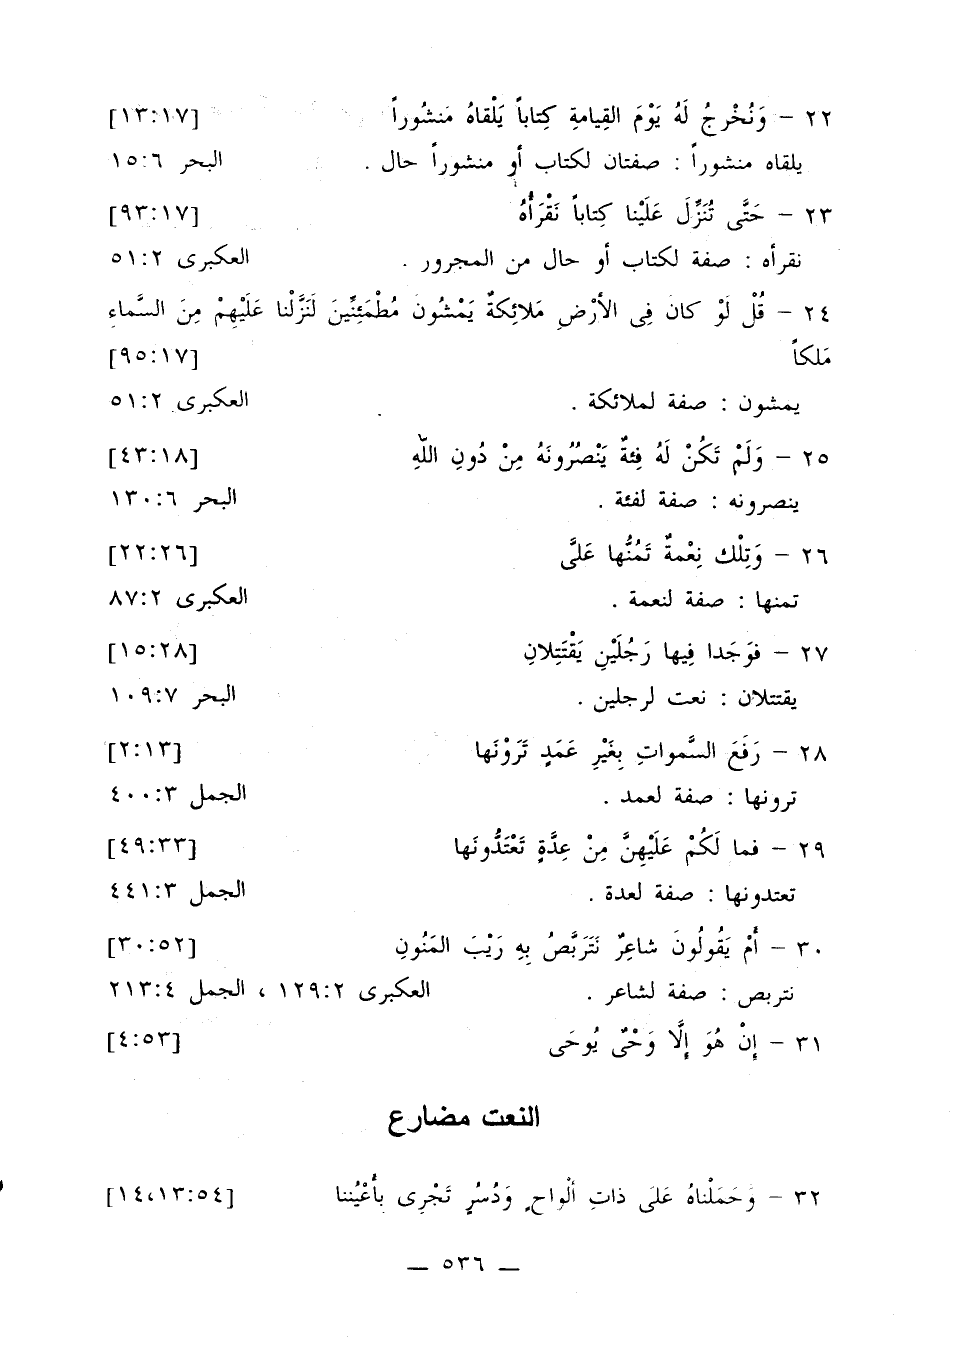 ٢٢ - وَنُخْرِجُ لَهُ يَوْمَ القِيامةِ كِتاباً يَلْقاهُ مَنشُوراً [١٣:١٧]
يلقاه منشوراً : صفتان لكتاب أو منشوراً حال . البحر ١٥:٦
٢٣ - حَتَّى تُنَزِّلَ عَلَيْنا كِتاباً نَقْرَأُهُ [٩٣:١٧]
نقرأه : صفة لكتاب أو حال من المجرور . العكبرى ٥١:٢
٢٤ - قُلْ لَوْ كان فِى الأرْضِ مَلائِكةٌ يَمْشُون مُطْمَئِنِّينَ لَنَزَّلْنا عَلَيْهِمْ مِنَ السَّماءِ
مَلكاً [٩٥:١٧]
يمشون : صفة لملائكة . العكبرى ٥١:٢
٢٥ - وَلَمْ تَكُنْ لَهُ فِئةٌ يَنْصُرُونَهُ مِنْ دُونِ اللَّهِ [٤٣:١٨]
ينصرونه : صفة لفئة . البحر ١٣٠:٦
٢٦ - وَتِلْك نِعْمةٌ تَمُنُّها عَلَىَّ [٢٢:٢٦]
تمنها : صفة لنعمة . العكبرى ٨٧:٢
٢٧ - فوَجَدا فِيها رَجُلَيْنِ يَقْتَتِلانِ [١٥:٢٨]
يقتتلان : نعت لرجلين . البحر ١٠٩:٧
٢٨ - رَفَعَ السَّمواتِ بِغَيْرِ عَمَدٍ تَرَوْنَها [٢:١٣]
ترونها : صفة لعمد . الجمل ٤٠٠:٣
٢٩ - فما لَكُمْ عَلَيْهِنَّ مِنْ عِدَّةٍ تَعْتَدُّونَها [٤٩:٣٣]
تعتدونها : صفة لعدة . الجمل ٤٤١:٣
٣٠ - أَمْ يَقُولُونَ شاعِرٌ نَتَرَبَّصُ بِهِ رَيْبَ المَنُونِ [٣٠:٥٢]
نتربص : صفة لشاعر . العكبرى ١٢٩:٢ ، الجمل ٢١٣:٤
٣١ - إِنْ هُوَ إِلَّا وَحْىٌ يُوحَى [٤:٥٣]
النعت مضارع
٣٢ - وَحَمَلْناهُ عَلَى ذاتِ ألْواحٍ وَدُسُرٍ تَجْرِى بأعْيُننا [١٤،١٣:٥٤]
— ٥٣٦ —